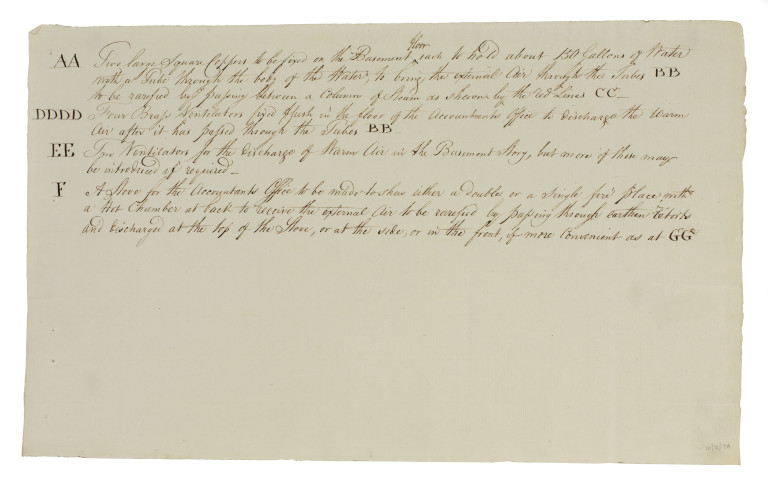 floor
AA Two large Square Coppers to be fixed on the Basement each to hold about 150 Gallons of Water
with a Tube through the body of the Water, to bring the external Air through the Tubes BB
to be rarified by passing between a Column of Steam as shewn by the red Lines CC —
DDDD Four Brass Ventilators fixed flush in the floor of the Accountants Office to discharge the Warm
Air after it has passed through the Tubes BB
EE Two Ventilators for the discharge of Warm Air in the Basement Story, but more of them may
be introduced if required —
F A Stove for the Accountants Office to be made to shew either a double or a single fire place with
a Hot Chamber at back to receive the external Air to be rarefied by passing through earthen Retorts
and discharged at the top of the Stove, or at the side, or in the front, if more Convenient as at GG